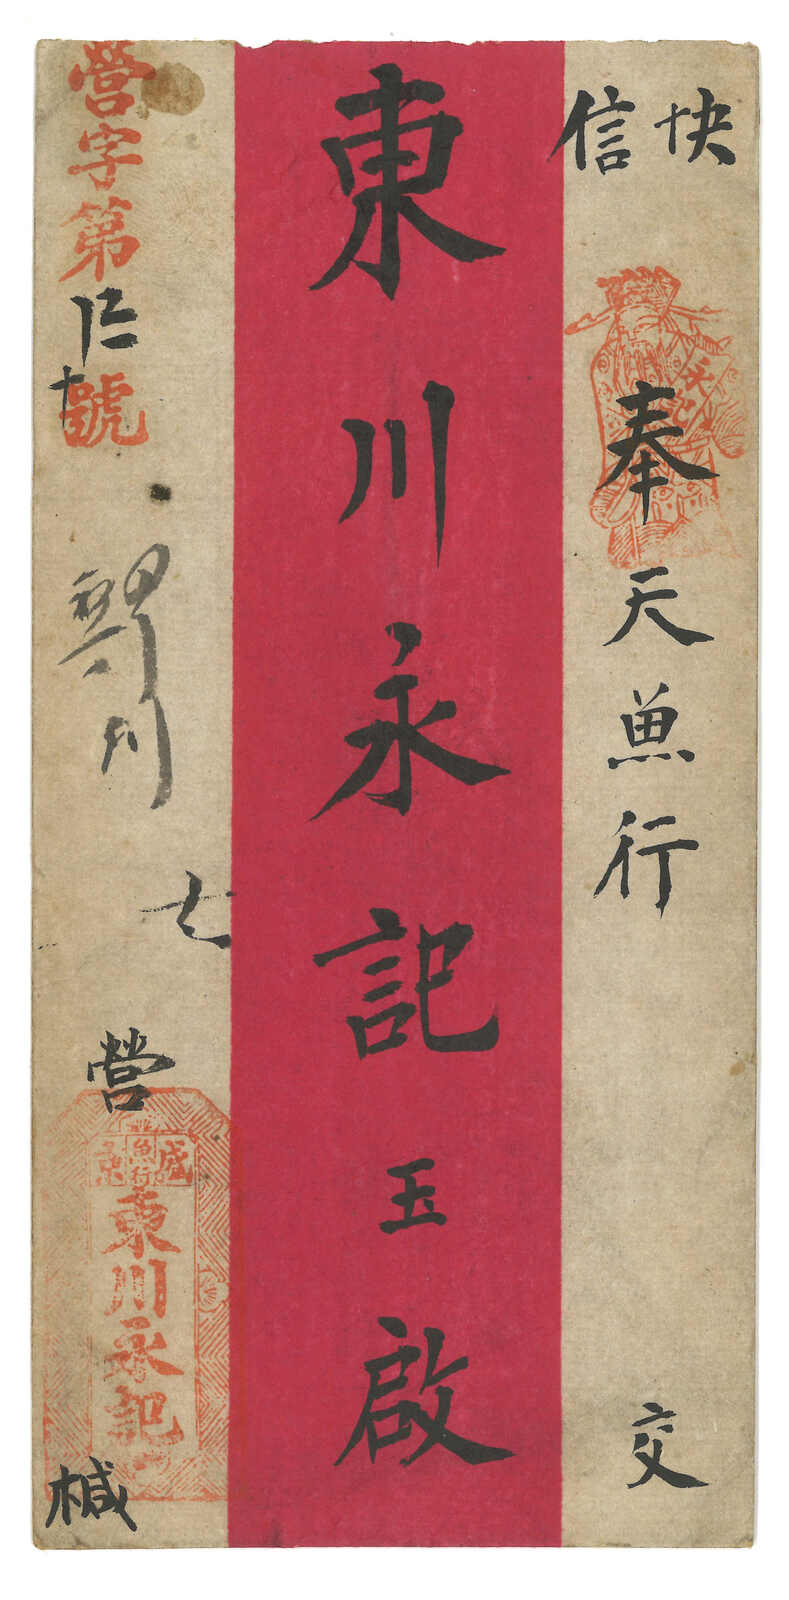 快信
奉天魚行
交
永記
東川永記玉啟
營字第
十
號
七
營
緘
魚行
東川永記